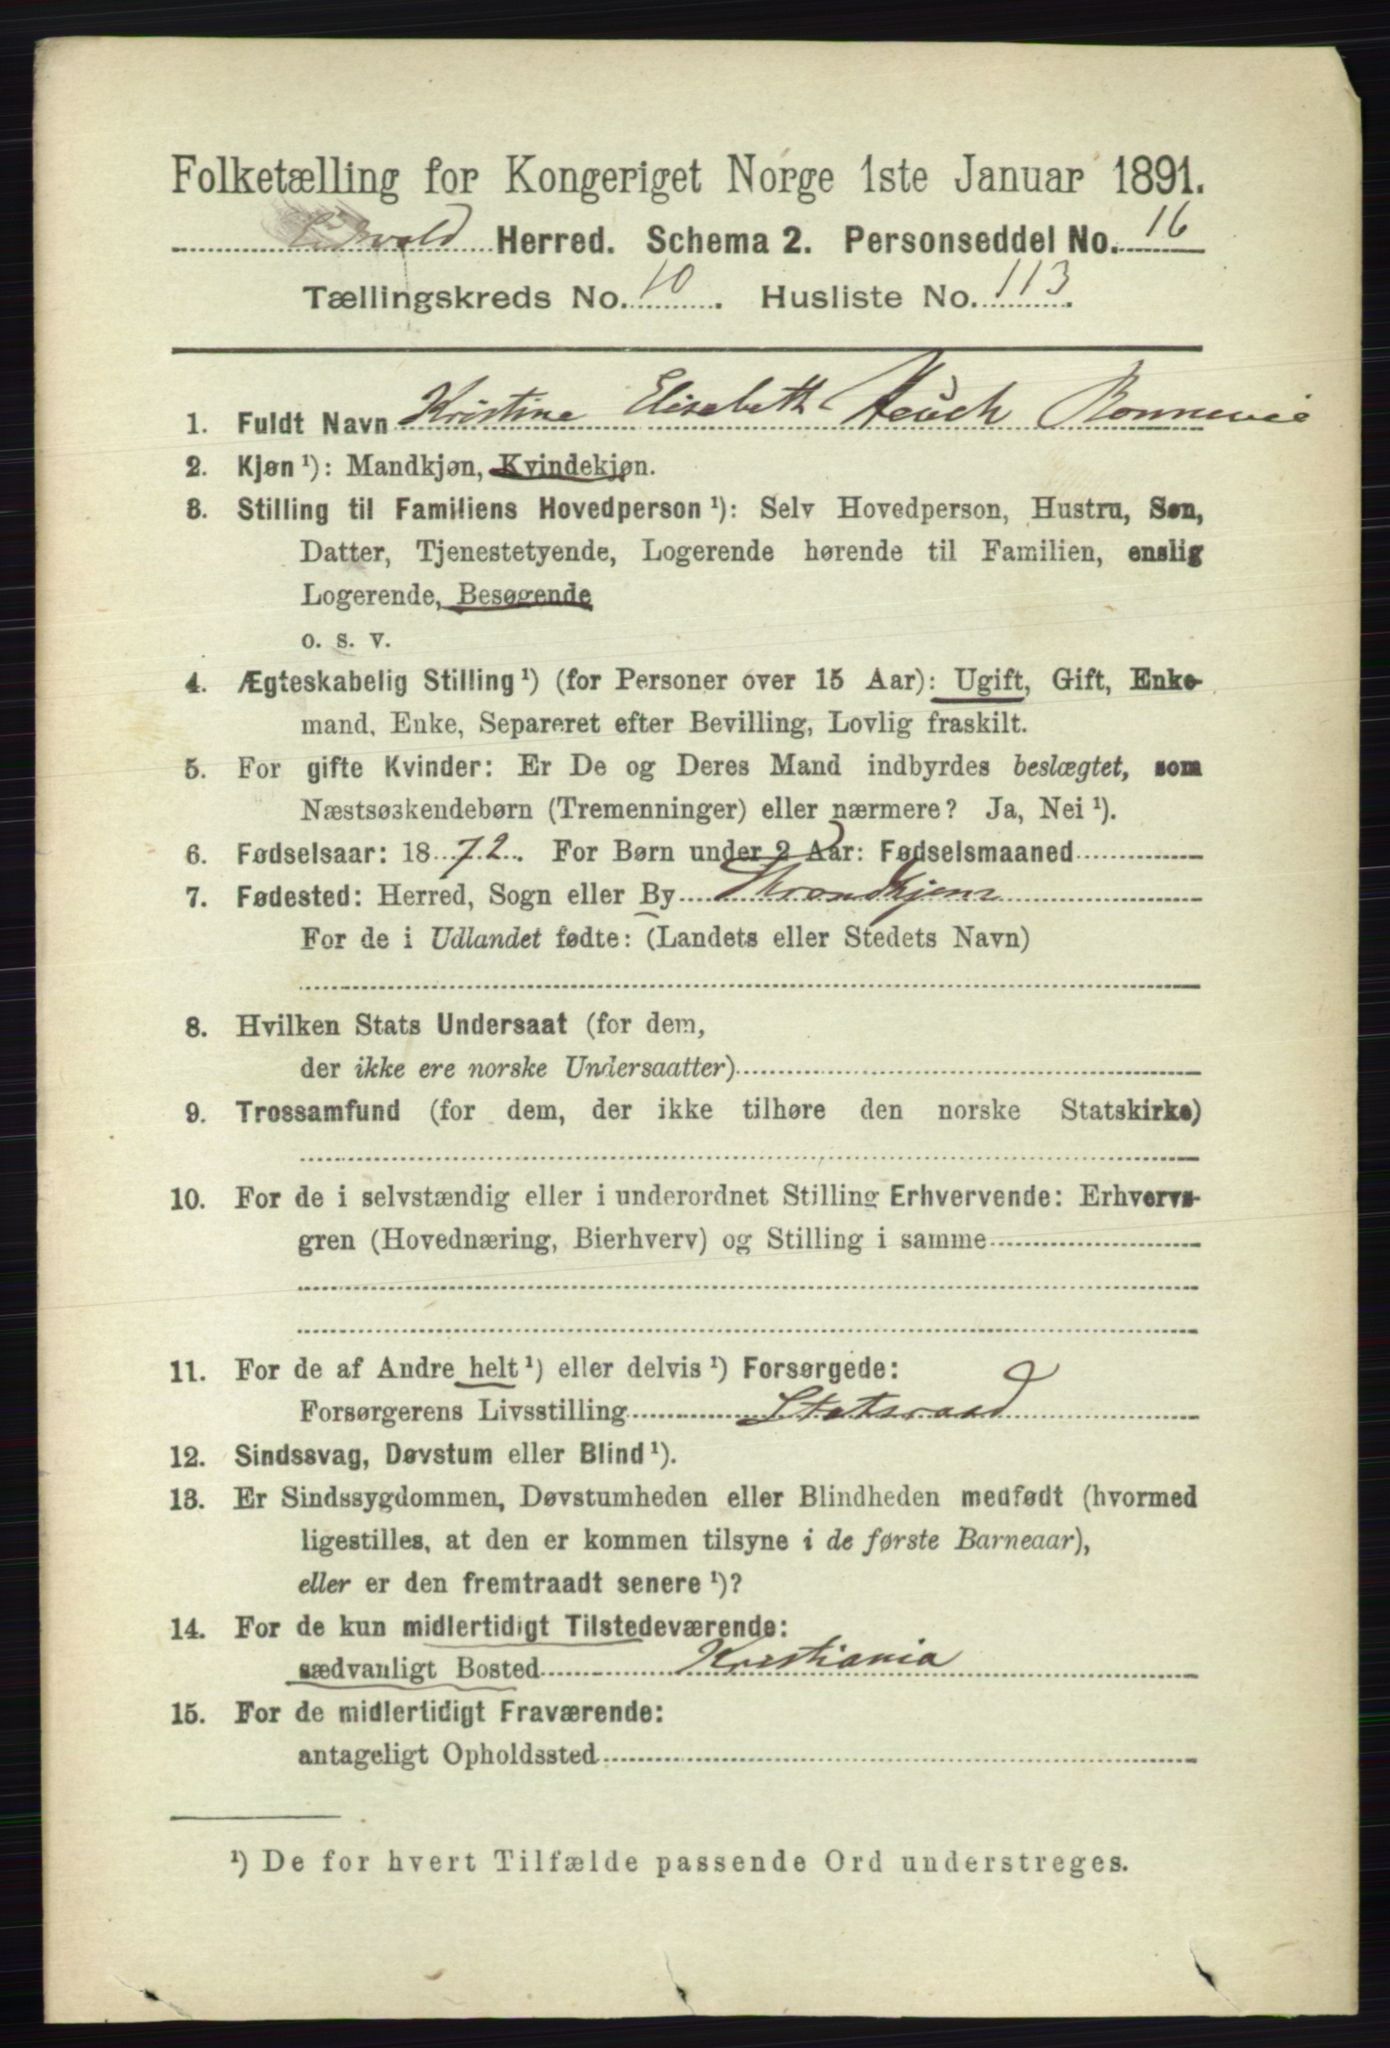 Folketælling for Kongeriget Norge 1ste Januar 1891.
Eidsvold Herred. Schema 2. Personseddel No. 16
Tællingskreds No. 10. Husliste No. 113.
1. Fuldt Navn Kristine Elisabeth Heuch Bonnevie
2. Kjøn ¹): Mandkjøn, Kvindekjøn.
3. Stilling til Familiens Hovedperson ¹): Selv Hovedperson, Hustru, Søn,
Datter, Tjenestetyende, Logerende hørende til Familien, enslig
Logerende, Besøgende
o. s. v.
4. Ægteskabelig Stilling ¹) (for Personer over 15 Aar): Ugift, Gift, Enke-
mand, Enke, Separeret efter Bevilling, Lovlig fraskilt.
5. For gifte Kvinder: Er De og Deres Mand indbyrdes beslægtet, som
Næstsøskendebørn (Tremenninger) eller nærmere? Ja, Nei ¹).
6. Fødselsaar: 1872. For Børn under 2 Aar: Fødselsmaaned
7. Fødested: Herred, Sogn eller By Throndhjem
For de i Udlandet fødte: (Landets eller Stedets Navn)
8. Hvilken Stats Undersaat (for dem,
der ikke ere norske Undersaatter)
9. Trossamfund (for dem, der ikke tilhøre den norske Statskirke)
10. For de i selvstændig eller i underordnet Stilling Erhvervende: Erhvervs-
gren (Hovednæring, Bierhverv) og Stilling i samme
11. For de af Andre helt ¹) eller delvis ¹) Forsørgede:
Forsørgerens Livsstilling Statsraad
12. Sindssvag, Døvstum eller Blind ¹).
13. Er Sindssygdommen, Døvstumheden eller Blindheden medfødt (hvormed
ligestilles, at den er kommen tilsyne i de første Barneaar),
eller er den fremtraadt senere ¹)?
14. For de kun midlertidigt Tilstedeværende:
sædvanligt Bosted Kristiania
15. For de midlertidigt Fraværende:
antageligt Opholdssted
¹) De for hvert Tilfælde passende Ord understreges.